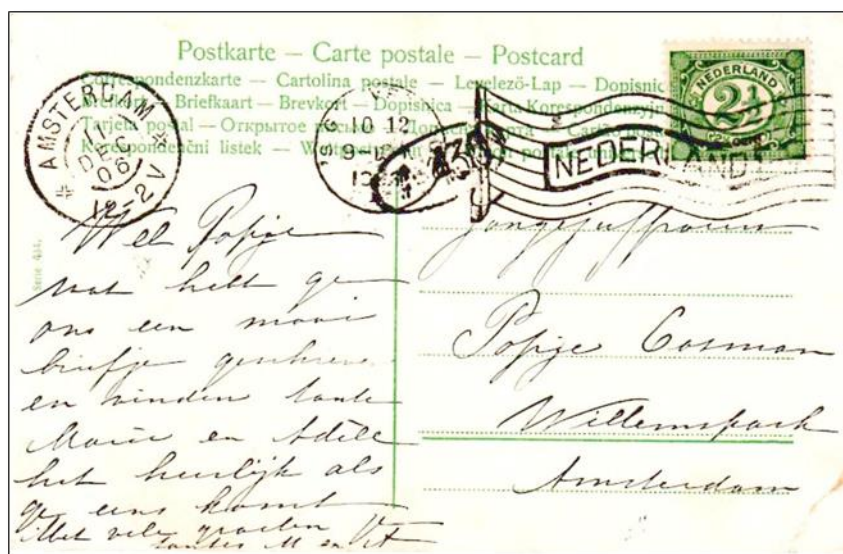 Postkarte — Carte postale — Postcard
Correspondenzkarte — Cartolina postale — Levelező-Lap — Dopisnic
Briefkort — Briefkaart — Brevkort — Dopisnica — Karta Korespondenzyjn
Tarjeta postal — Открытое письмо — Дописна карта — Cartão post
Korespondenční listek —
NEDERLAND
2½
CENT
AMSTERDAM
11
DEC
06
12-2V
10 12
9
NEDERLAND
Serie 414.
Wel Popje
wat hebt ge
ons een mooi
briefje geschreven
en vinden tante
Marie en Adèle
het heerlijk als
ge eens komt
Met vele groeten
tantes M en
Jongejufvrouw
Popje Cosman
Willemspark
Amsterdam